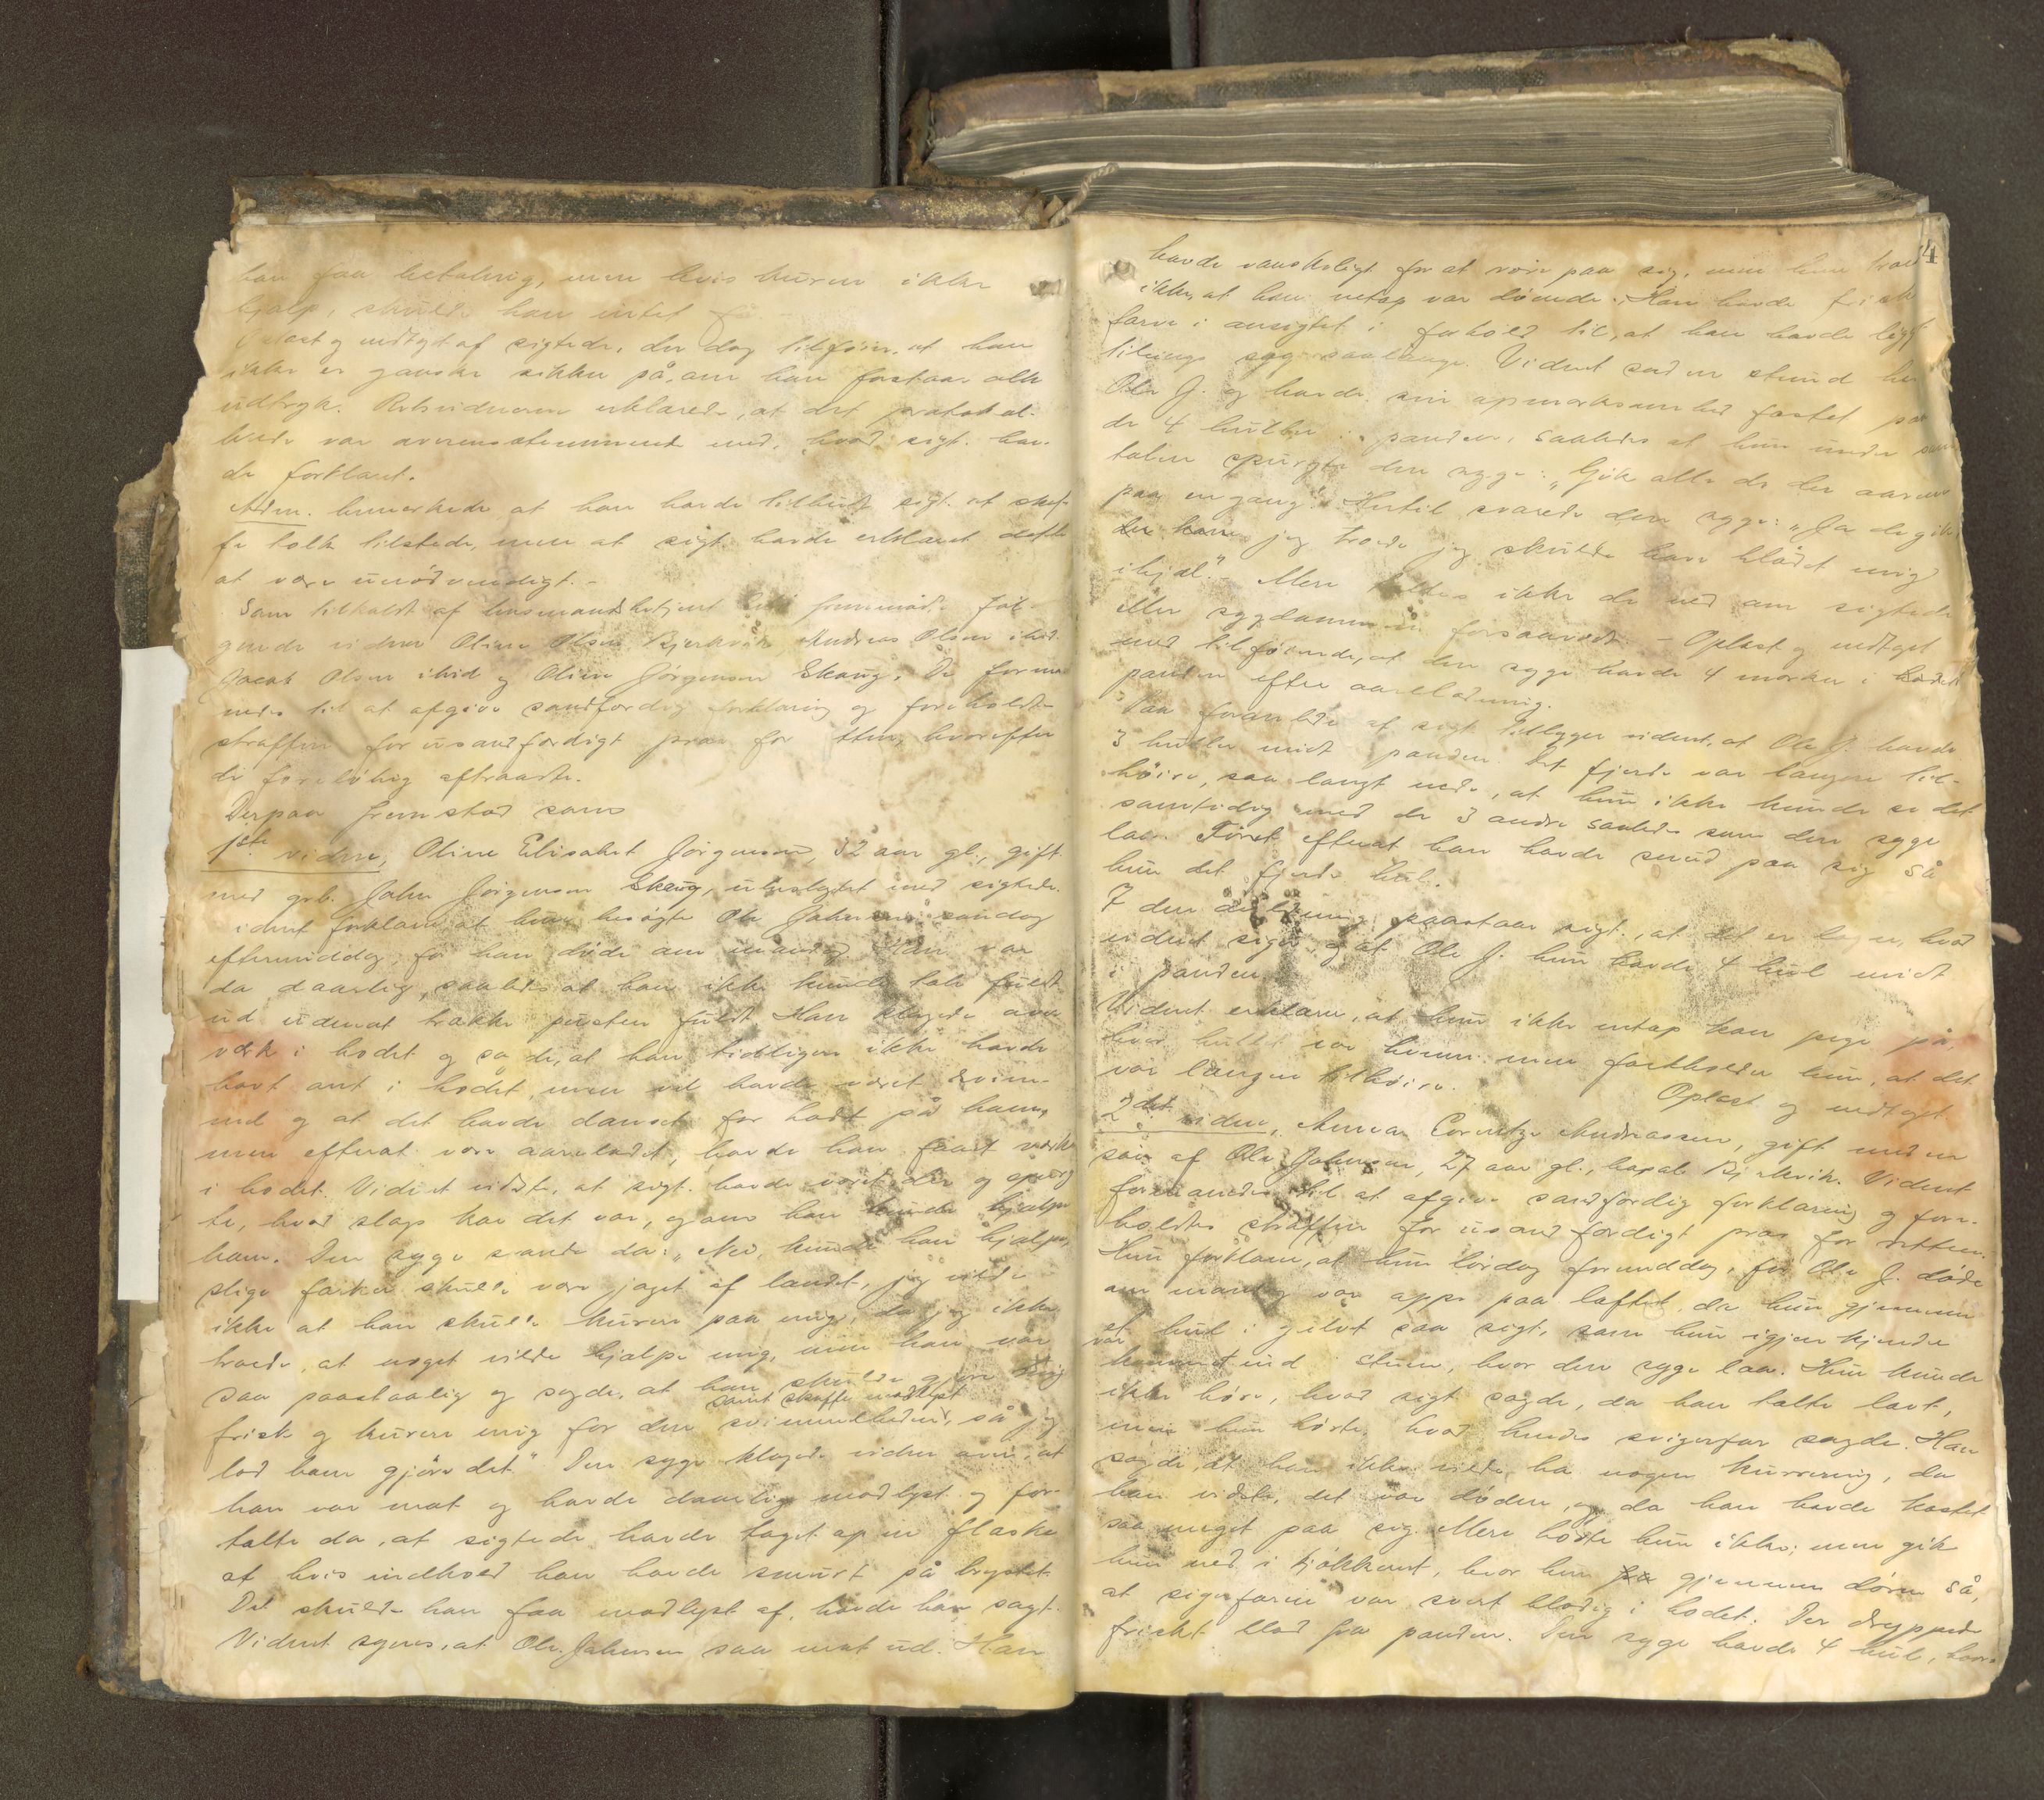 han faa betaling, men hvis kuren ikke
hjalp, skulde han intet
Oplæst og vedtaget af sigtede, der dog tilføier, at han
ikke er ganske sikker på, om han forstaar alle
udtryk. Retsvidnerne erklærede, at det protokol-
lerede var overensstemmende med, hvad sigt. hav-
de forklaret.
Adm. bemerkede at han havde tilbudt sigt. at skaf-
fe tolk tilstede, men at sigt. havde erklæret dette
at være unødvendigt. -
Som tilkaldt af lensmandsbetjent fremmødte føl-
gende vidner Oline Olsen Bjerkvik Andreas Olsen ibid
Jacob Olsen ibid og Oline Jørgensen Skoug. De forma-
nedes til at afgive sandfærdig forklaring og foreholdtes
straffen for usandfærdigt prov for retten, hvorefter
de foreløbig aftraadte.
Derpaa fremstod som
1ste vidne, Oline Elisabet Jørgensen, 32 aar gl., gift
med grb. John Jørgensen Skoug, ubeslegtet med sigtede.
Vidnet forklarer at hun besøgte Ole Johnsen søndag
eftermiddag, før han døde om mandag. Olden var
da daarlig, saaledes at han ikke kunde tale fuldt
ud uden at trække pusten fuldt. Han klagede over
verk i hodet og sagde, at han tidligere ikke havde
havt ont i hodet, men vel havde været svim-
mel og at det havde danset for hodet på ham,
men efterat være aareladet, havde han faaet værk
i hodet. Vidnet vidste, at sigt. havde været der og spurg-
te, hvad slags kar det var, og om han kunde hjælpe
ham. Den syge svarede da: „Nei, kunde han hjælpe,
slige farker skulde være jaget af landet, jeg vilde
ikke at han skulde kurere paa mig, da jeg ikke
troede, at noget vilde hjælpe mig, men han var
saa paastaalig og sagde, at han skulde gjøre mig
samt skaffe madlyst
frisk og kurere mig for den svimmelheden, så jeg
lod ham gjøre det." Den syge klagede videre over, at
han var mat og havde daarlig madlyst og for-
talte da, at sigtede havde taget op en flaske
af hvis indhold han havde smurt på brystet.
Det skulde han faa madlyst af, havde han sagt.
Vidnet synes, at Ole Johnsen saa mat ud. Han
4
havde vanskeligt for at røre paa sig, men hun troede
ikke, at han netop var døende. Han havde frisk
farve i ansigtet i forhold til, at han havde ligget
tilsengs syg saa længe. Vidnet sad en stund hos
Ole J. og havde sin opmærksomhed fæstet paa
de 4 huller i panden, saaledes at hun under sam-
talen spurgte den syge: „Gik alle de der aarene
paa en gang?" Hertil svarede den syge: „Ja de gik
jeg troede jeg skulde have blødet mig
ihjæl." - Mere taltes ikke de ved om sigtede
eller sygdommen forsaavidt - Oplæst og vedtaget
med tilføiende, at den syge havde 4 mærker i
panden efter aareladning.
Paa foranledn. af sigt. tillægger vidnet, at Ole J. havde
3 huller midt i panden. Det fjerde var længere til-
høire, saa langt nede, at hun ikke kunde se det
samtidig med de 3 andre saaledes som den syge
laa. Først efterat han havde snud paa sig så
hun det fjerde hul.
I den anledning paastaar sigt., at det er løgn, hvad
vidnet siger og at Ole J. kun havde 4 hul midt
i panden.
Vidnet erklærer, at hun ikke netop kan pege på,
hvor hullet var henne, men fastholder kun, at det
var længere tilhøire.
Oplæst og vedtaget
2det vidne, Anna Cornelye Andreassen, gift med en
søn af Ole Johnsen, 27 aar gl., bopæl Bjerkvik. Vidnet
formanedes til at afgive sandfærdig forklaring og fore-
holdtes straffen for usandfærdigt prov for retten.
Hun forklarer, at hun lørdag formiddag, før Ole J. døde
om mandag var oppe paa loftet, da hun gjennem
et hul i gulvet saa sigt., som hun igjenkjendte
var
kommet ind i stuen, hvor den syge laa. Hun kunde
ikke høre, hvad sigt. sagde, da han talte lavt,
men hun hørte, hvad hendes svigerfar sagde. Han
sagde, at han ikke vilde ha nogen kurering, da
han vidste, det var døden, og da han havde kostet
saa meget paa sig. Mere hørte hun ikke; men gik
hun ned i kjøkkenet, hvor hun gjennem døren så,
at svigerfaren var svert blodig i hodet. Der dryppede
friskt blod fra panden. Den syge havde 4 hul, hvor-